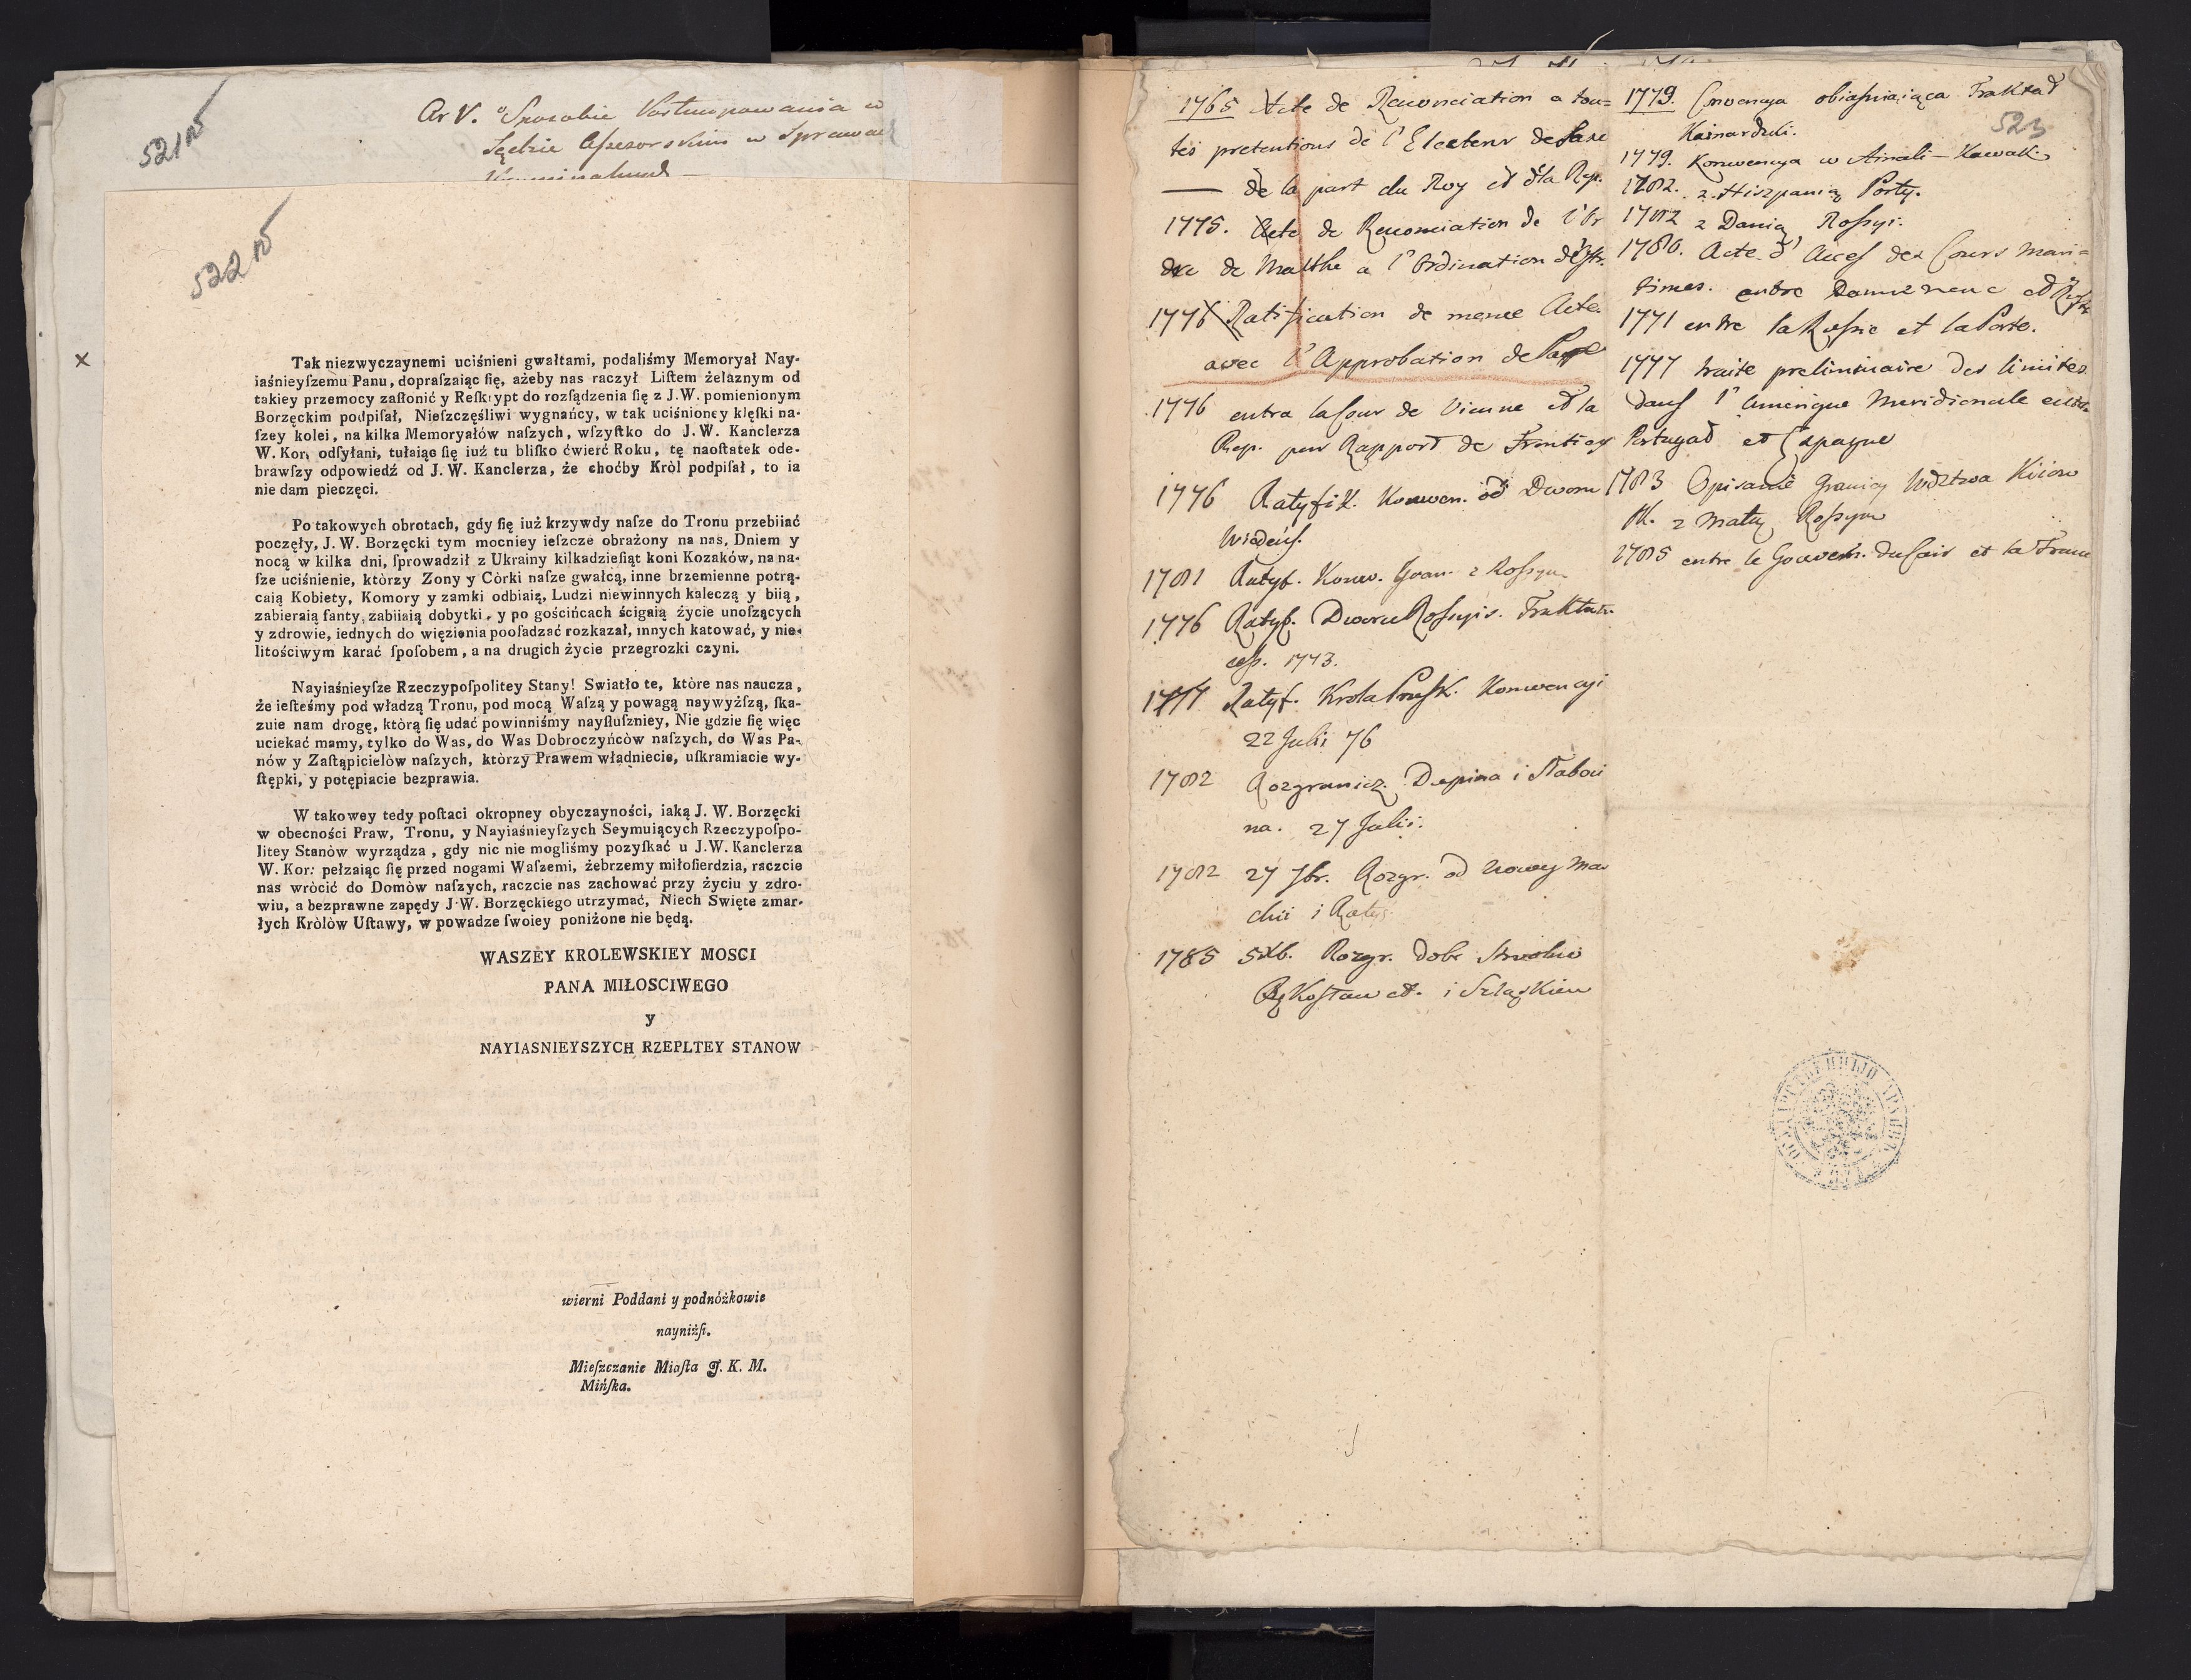 521v
Ar V. o Sposobie Postempowania w
Sądzie Assessorskim w Sprawach
522v
Tak niezwyczaynemi uciśnieni gwałtami, podaliśmy Memoryał Nay-
iaśnieyſzemu Panu, dopraſzaiąc ſię, ażeby nas raczył Liſtem żelaznym od
takiey przemocy zaſłonić y Reſkrypt do rozſądzenia ſię z J.W. pomienionym
Borzęckim podpiſał, Nieſzczęśliwi wygnańcy, w tak uciśnioney klęſki na-
ſzey kolei, na kilka Memoryałów naſzych, wſzyſtko do J. W. Kanclerza
W. Kor. odſyłani, tułaiąc ſię iuż tu bliſko ćwierć Roku, tę naoſtatek ode-
brawſzy odpowiedź od J. W. Kanclerza, że choćby Kròl podpiſał, to ia
nie dam pieczęci.
Po takowych obrotach, gdy ſię iuż krzywdy naſze do Tronu przebiiać
poczęły, J. W. Borzęcki tym mocniey ieſzcze obrażony na nas, Dniem y
nocą w kilka dni, ſprowadził z Ukrainy kilkadzieſiąt koni Kozaków, na na-
ſze uciśnienie, ktòrzy Zony y Còrki naſze gwałcą, inne brzemienne potrą-
caią Kobiety, Komory y zamki odbiaią, Ludzi niewinnych kaleczą y biią,
zabieraią fanty, zabiiaią dobytki, y po gościńcach ścigaią życie unoſzących
y zdrowie, iednych do więzienia pooſadzać rozkazał, innych katować, y nie-
litościwym karać ſpoſobem, a na drugich życie przegrozki czyni.
Nayiaśnieyſze Rzeczypoſpolitey Stany! Swiatło te, ktòre nas naucza,
że ieſteśmy pod władzą Tronu, pod mocą Waſzą y powagą naywyżſzą, ſka-
zuie nam drogę, ktòrą ſię udać powinniśmy nayſłuſzniey, Nie gdzie ſię więc
uciekać mamy, tylko do Was, do Was Dobroczyńcòw naſzych, do Was Pa-
nów y Zaſtąpicielòw naſzych, ktòrzy Prawem władniecie, uſkramiacie wy-
ſtępki, y potępiacie bezprawia.
W takowey tedy poſtaci okropney obyczayności, iaką J. W. Borzęcki
w obecności Praw, Tronu, y Nayiaśnieyſzych Seymuiących Rzeczypoſpo-
litey Stanòw wyrządza, gdy nic nie mogliśmy pozyſkać u J.W. Kanclerza
W. Kor: pełzaiąc ſię przed nogami Waſzemi, żebrzemy miłoſierdzia, raczcie
nas wròcić do Domòw naſzych, raczcie nas zachować przy życiu y zdro-
wiu, a bezprawne zapędy J.W. Borzęckiego utrzymać, Niech Swięte zmar-
łych Kròlòw Uſtawy, w powadze ſwoiey poniżone nie będą.
WASZEY KROLEWSKIEY MOSCI
PANA MIŁOSCIWEGO
y
NAYIASNIEYSZYCH RZEPLTEY STANOW
wierni Poddani y podnóżkowie
nayniżſi.
Mieſzczanie Miaſta J. K. M.
Mińſka.
1765 Acte de Renonciation a tou=
tes pretentions de l'Electeur de Saxe
— de la part du Roy et d la Rep.
1775. Acte de Renonciation de l'Or
dre de Malthe a l'Ordination d'Ostr.
1776 Ratification de meme Acte
avec l'Approbation de Pape
1776 entre la Cour de Vienne et la
Rep. par Rapport de Frontier
1776 Ratyfik. Konwen. od Dworu
Wiedeńs.
1781 Ratyf. Konw. Gran. z Rossyą
1776 Ratyf. Dworu Rossyis. Traktatu
1773.
1777 Ratyf. Krola Prusk. Konwencyi
22 Julii 76
1782 Rozgranicz. i
na. 27 Julii.
1782 27 7br. Rozgr. od Nowey Mar
chii i Ratyf.
1785 5 Xb. Rozgr. Dobr
i Szląskiem
523
1779. Conwencya obiaśniaiąca Traktat
Kainardzki.
1779. Konwencya w Ainali-Kawak.
1782. z Hiszpanią Porty.
1782 z Danią Rossyi.
1780. Acte d'Acces des Cours Mari=
times. entre Dannemenc et
1771 entre la Russie et la Porte.
1777 traite preliminaire des limites
dans l'Amerique Meridionale entre
Portugal et Espagne
1783 Opisanie Granicy Wdztwa Kiiow
sk. z Małą Rossyą
1785 entre le Gouvern. du Cair et la France